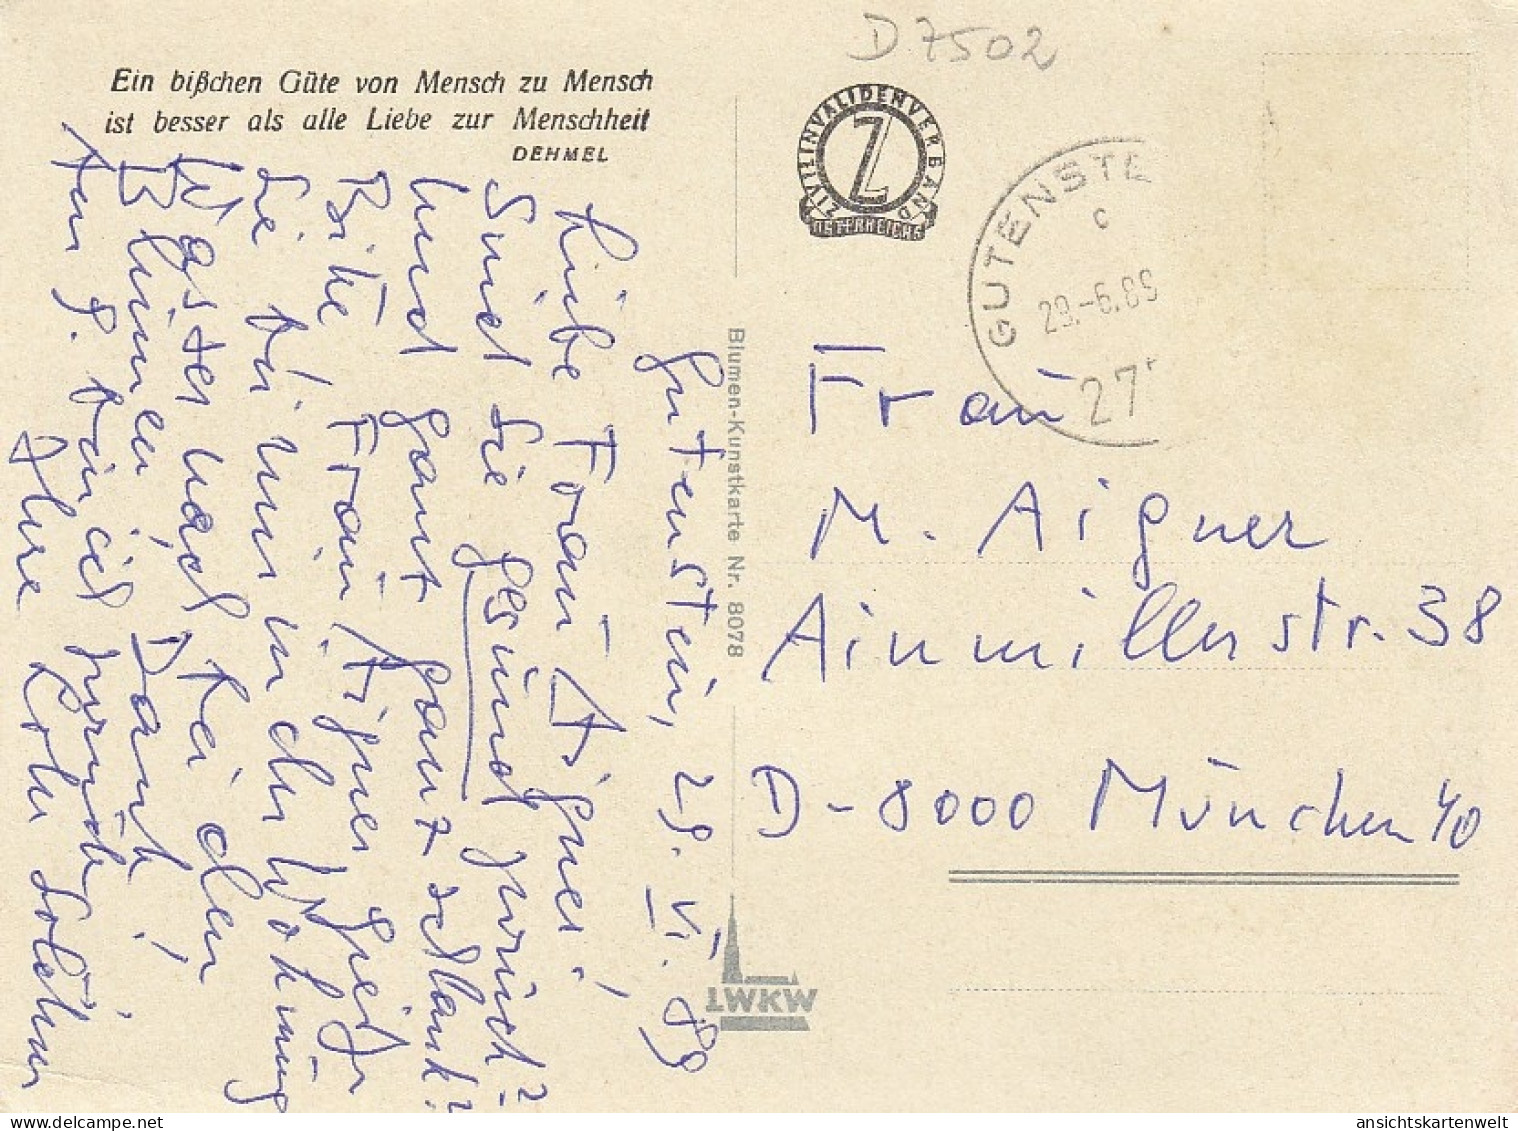 D 7502
Ein bißchen Güte von Mensch zu Mensch
ist besser als alle Liebe zur Menschheit
DEHMEL
ZIVILINVALIDENVERBAND
ÖSTERREICHS
Z
GUTENSTE
c
29.-6.89
27
Gutenstein, 29. VI. 89
Liebe Frau Aigner!
Sind Sie gesund zurück?
Und ganz ganz schlank?
Bitte Frau Aigner
Sie bei mir in der Wohnung
Wasser nach bei den
Blumen! Dank!
Am 9. bin ich zurück!
Ihre
Blumen-Kunstkarte Nr. 8078
LWKW
Frau
M. Aigner
Ainmillerstr. 38
D-8000 München 40
ansichtskartenwelt.de
ansichtskartenwelt